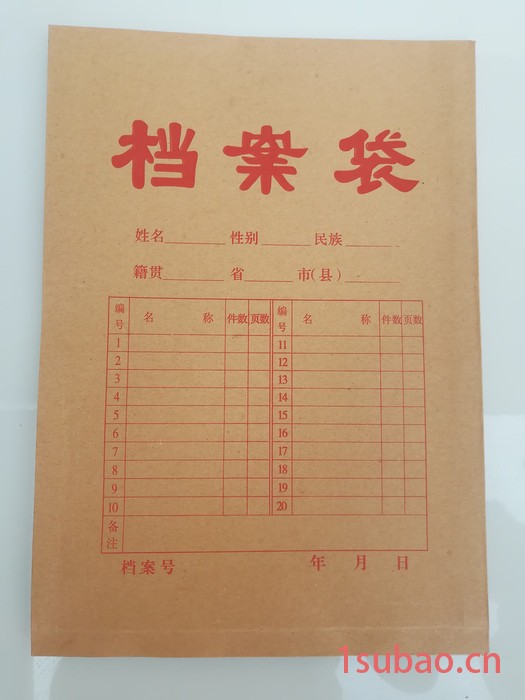 档案袋
姓名______ 性别_____ 民族_____
籍贯______ 省_____ 市(县)_____
编号 名 称 件数 页数 编号 名 称 件数 页数
1 11
2 12
3 13
4 14
5 15
6 16
7 17
8 18
9 19
10 20
备注
档案号 年 月 日
1subao.cn